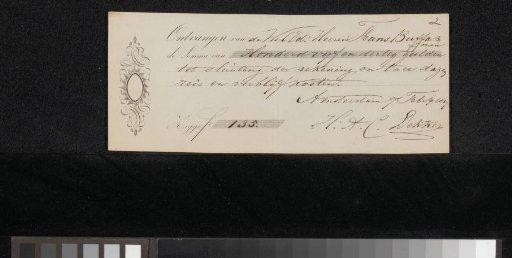 2
Ontvangen van de Heeren Frans Buffa &
Zonen
de Somma van Honderd vijf en dertig gulden
tot sluiting der rekening en twee dag
reis en verblijf kosten.
Amsterdam 7
Zegge f 135.
H. A. C. Dekker